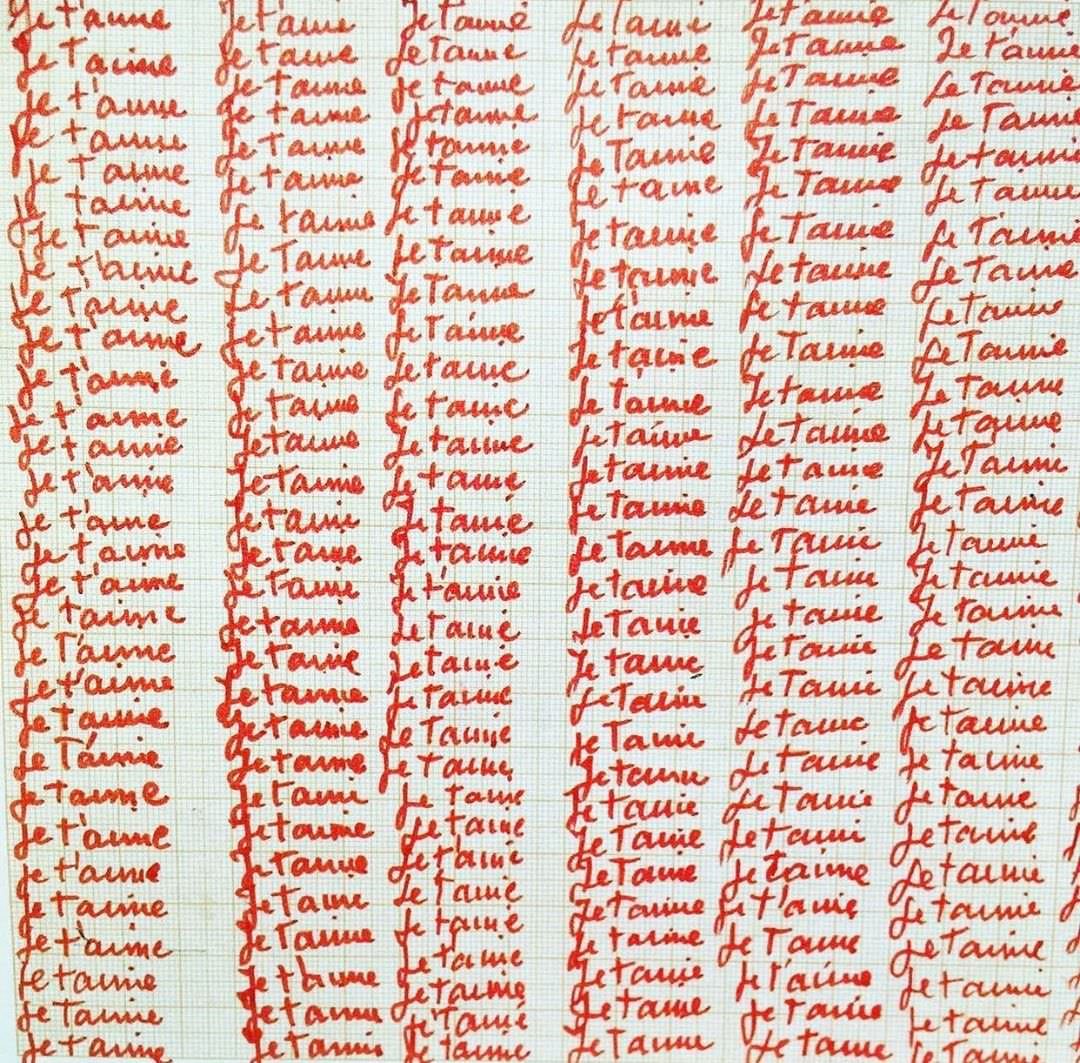 Je t'aime Je t'aime Je t'aime Je t'aime Je t'aime Je t'aime
Je t'aime Je t'aime Je t'aime Je t'aime Je t'aime Je t'aime
Je t'aime Je t'aime Je t'aime Je t'aime Je t'aime Je t'aime
Je t'aime Je t'aime Je t'aime Je t'aime Je t'aime Je t'aime
Je t'aime Je t'aime Je t'aime Je t'aime Je t'aime Je t'aime
Je t'aime Je t'aime Je t'aime Je t'aime Je t'aime Je t'aime
Je t'aime Je t'aime Je t'aime Je t'aime Je t'aime Je t'aime
Je t'aime Je t'aime Je t'aime Je t'aime Je t'aime Je t'aime
Je t'aime Je t'aime Je t'aime Je t'aime Je t'aime Je t'aime
Je t'aime Je t'aime Je t'aime Je t'aime Je t'aime Je t'aime
Je t'aime Je t'aime Je t'aime Je t'aime Je t'aime Je t'aime
Je t'aime Je t'aime Je t'aime Je t'aime Je t'aime Je t'aime
Je t'aime Je t'aime Je t'aime Je t'aime Je t'aime Je t'aime
Je t'aime Je t'aime Je t'aime Je t'aime Je t'aime Je t'aime
Je t'aime Je t'aime Je t'aime Je t'aime Je t'aime Je t'aime
Je t'aime Je t'aime Je t'aime Je t'aime Je t'aime Je t'aime
Je t'aime Je t'aime Je t'aime Je t'aime Je t'aime Je t'aime
Je t'aime Je t'aime Je t'aime Je t'aime Je t'aime Je t'aime
Je t'aime Je t'aime Je t'aime Je t'aime Je t'aime Je t'aime
Je t'aime Je t'aime Je t'aime Je t'aime Je t'aime Je t'aime
Je t'aime Je t'aime Je t'aime Je t'aime Je t'aime Je t'aime
Je t'aime Je t'aime Je t'aime Je t'aime Je t'aime Je t'aime
Je t'aime Je t'aime Je t'aime Je t'aime Je t'aime Je t'aime
Je t'aime Je t'aime Je t'aime Je t'aime Je t'aime Je t'aime
Je t'aime Je t'aime Je t'aime Je t'aime Je t'aime Je t'aime
Je t'aime Je t'aime Je t'aime Je t'aime Je t'aime Je t'aime
Je t'aime Je t'aime Je t'aime Je t'aime Je t'aime Je t'aime
Je t'aime Je t'aime Je t'aime Je t'aime Je t'aime Je t'aime
Je t'aime Je t'aime Je t'aime Je t'aime Je t'aime Je t'aime
Je t'aime Je t'aime Je t'aime
Je t'aime